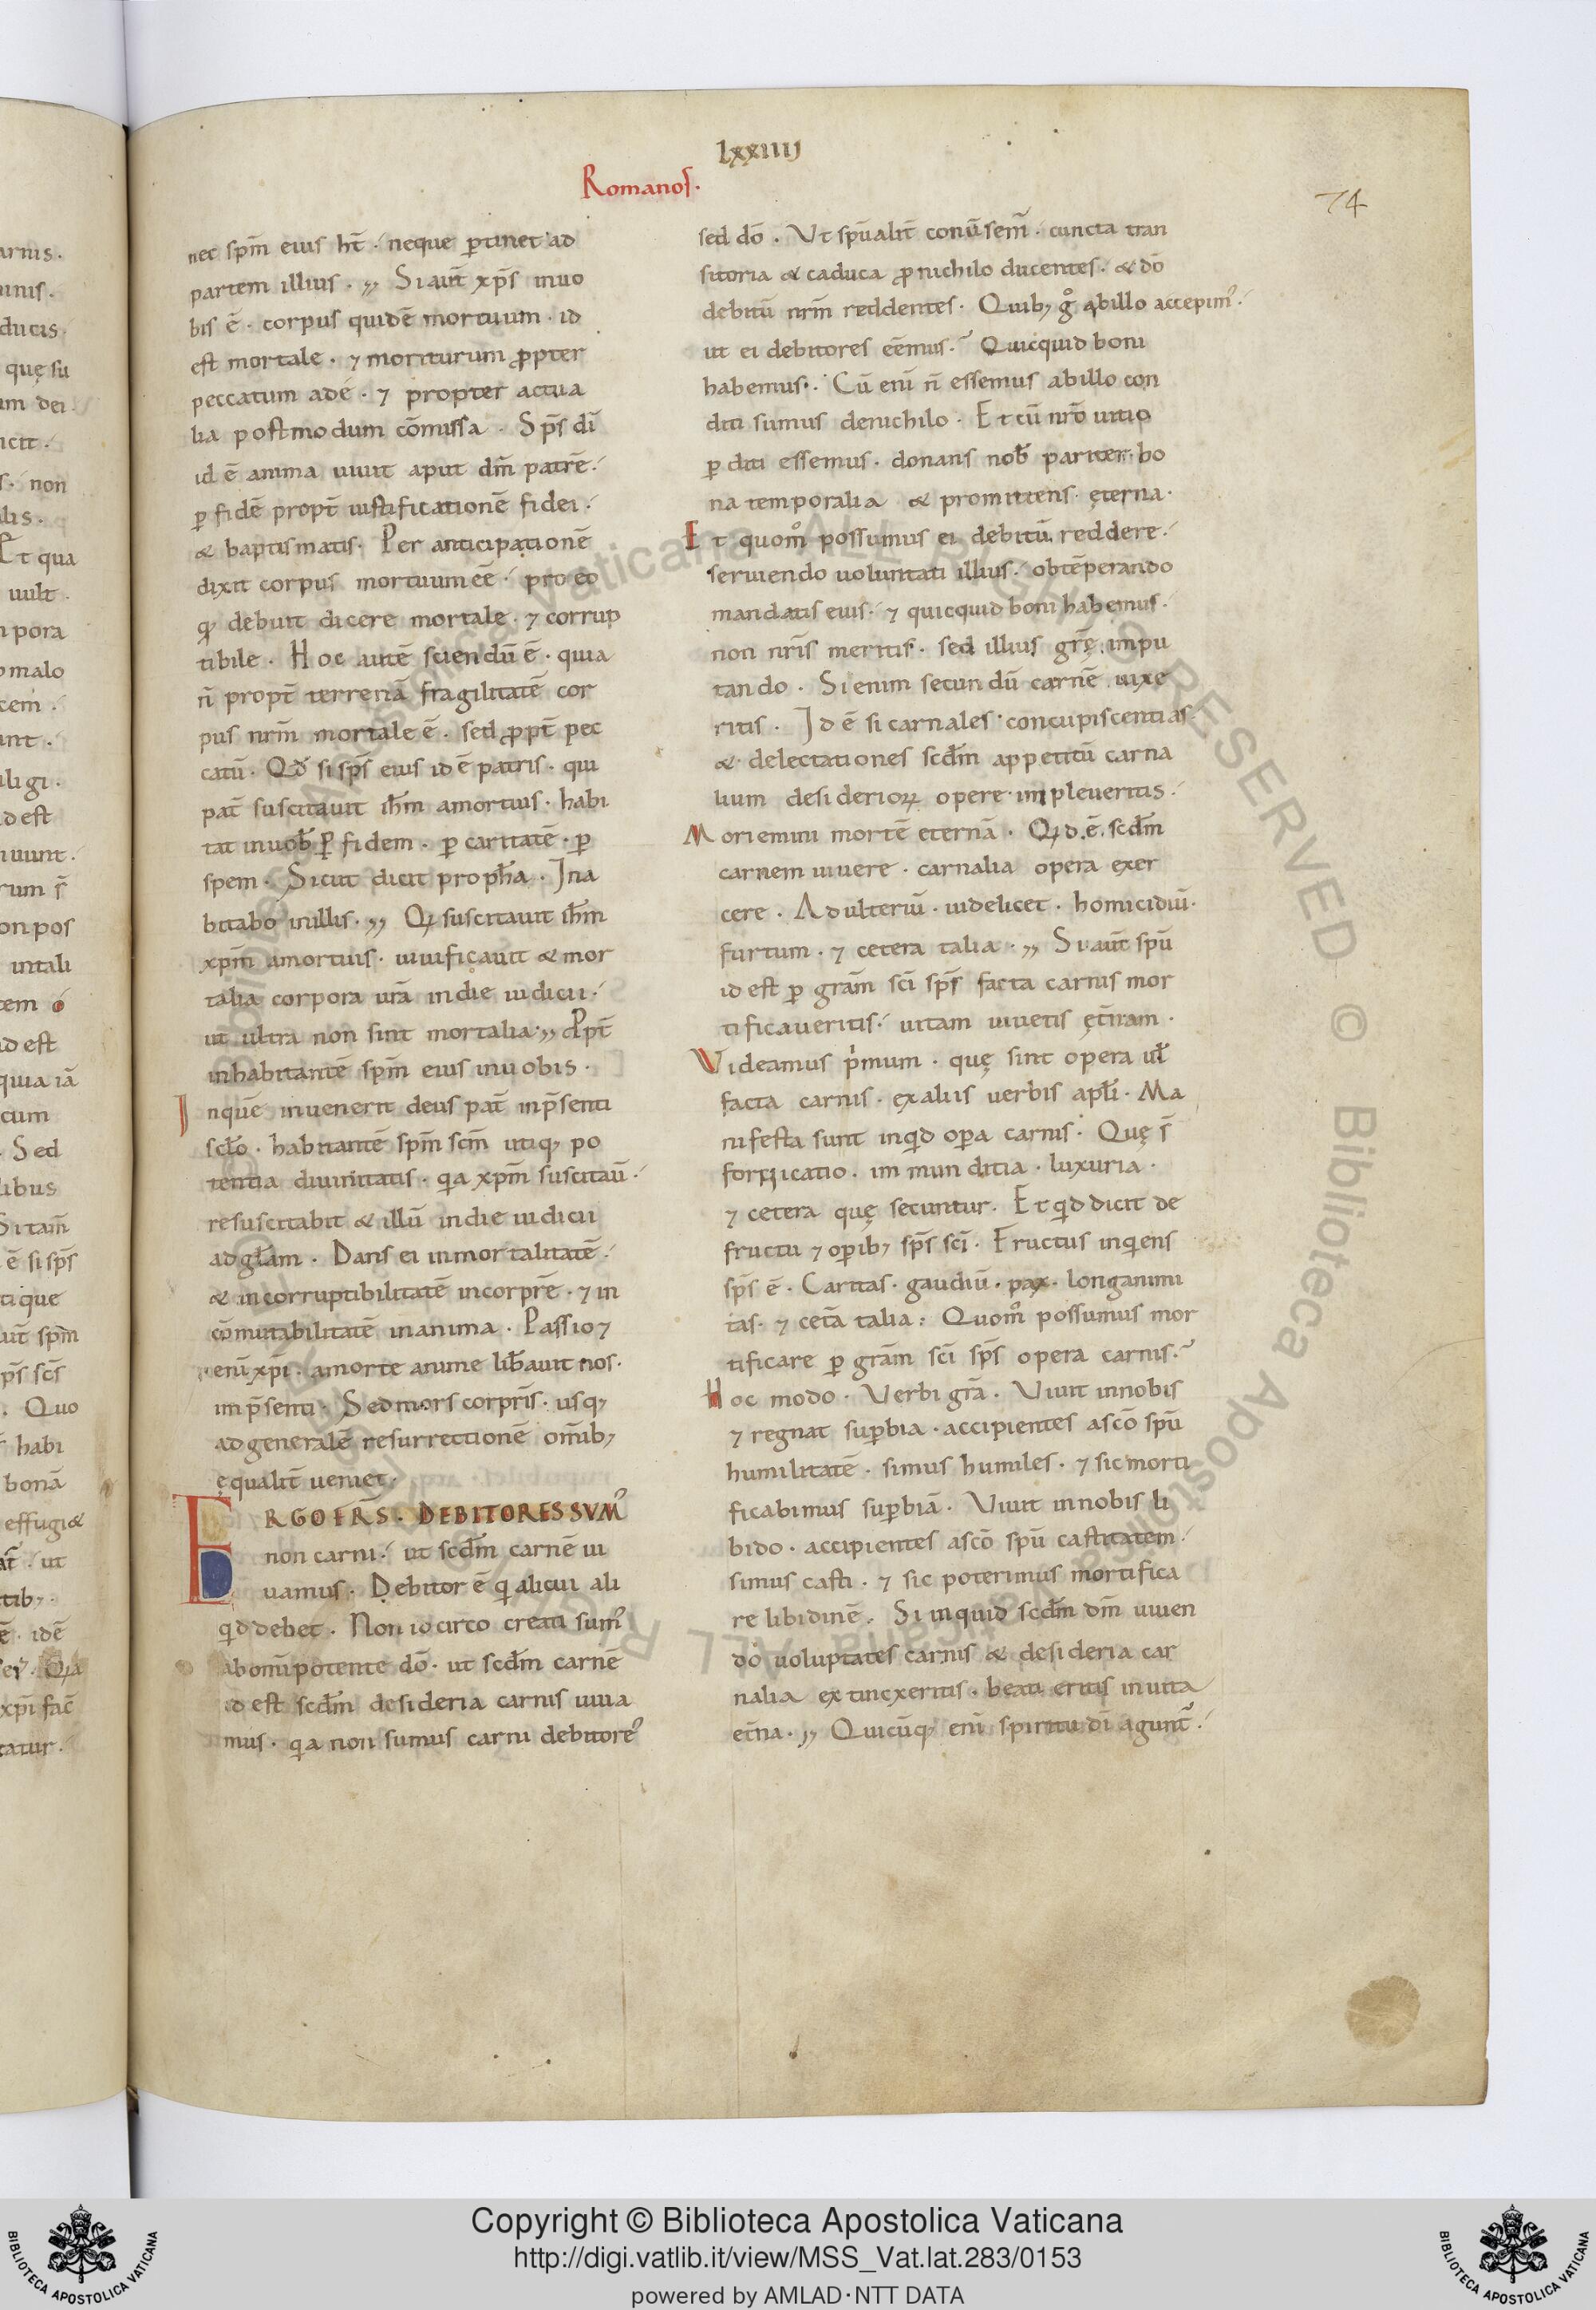 lxxiiij
Romanos.
74
nec spm̄ eius ht̄ . neque ptinet ad
partem illius . ,, Si aut̄ xp̄s in uo
bis ē . corpus quidē mortuum . id
est mortale . ⁊ moriturum ꝓpter
peccatum adę . ⁊ propter actua
lia postmodum cōmissa . Sp̄s dī
id ē anima uiuit aput dm̄ patrē .
ꝑ fidē propt̄ iustificationē fidei .
& baptismatis . Per anticipationē
dixit corpus mortuum eē . pro eo
qđ debuit dicere mortale . ⁊ corrup
tibile . Hoc autē sciendū ē . quia
n̄ propt̄ terrenā fragilitatē cor
pus nrm̄ mortale ē . sed ꝓpt̄ pec
catū . Qđ si sp̄s eius id ē patris . qui
pat̄ suscitauit ihm̄ a mortuis . habi
tat in uob̄ ꝑ fidem . ꝑ caritatē . ꝑ
spem . Sicut dicit propħa . Ina
bitabo in illis . ,, Qı suscitauit ihm̄
xpm̄ a mortuis . uiuificauit & mor
talia corpora urā in die iudicii .
ut ultra non sint mortalia . ,, Ꝓpt̄
inhabitantē spm̄ eius in uobis .
In quē inuenerit deus pat̄ in p̄senti
scl̄o . habitantē spm̄ scm̄ utiq; po
tentia diuinitatis . qa xpm̄ suscitau̅ .
resuscitabit & illū in die iudicii
ad glām . Dans ei inmortalitatē .
& incorruptibilitatē in corpr̄e . ⁊ in
cōmutabilitatē in anima . Passio ⁊
enī xpī . a morte anime libauit nos .
in p̄senti . Sed mors corpr̄is . usq;
ad generalē resurrectionē om̄ib;
ęqualit̄ ueniet .
ERGO FRS̄ . DEBITORES SVM᾿
non carni . ut scdm̄ carnē ui
uamus . Debitor ē qi alicui ali
qid debet . Non idcirco creati sum᾿
ab om̄ipotente dō . ut scdm̄ carnē
id est scdm̄ desideria carnis uiua
mus . qa non sumus carni debitore᾿
sed dō . Vt spūalit̄ conūsem̄ . cuncta tran
sitoria & caduca ꝓ nichilo ducentes . & dō
debitū nrm̄ reddentes . Quib; gͦ ab illo accepim᾿ .
ut ei debitores eēmus . Quicquid boni
habemus . Cū enī n̄ essemus ab illo con
diti sumus de nichilo . Et cū nr̄o uitio
ꝑditi essemus . donans nob̄ pariter bo
na temporalia & promittens ęterna .
Et quomͦ possumus ei debitū reddere .
seruiendo uoluntati illius . obtēperando
mandatis eius . ⁊ quicquid boni habemus .
non nr̄is meritis . sed illius gr̄ę impu
tando . Si enim secundū carnē uixe
ritis . Id ē si carnales concupiscentias .
& delectationes scdm̄ appetitū carna
lium desiderioꝝ opere impleueritis .
Moriemini mortē eternā . Qid ē scdm̄
carnem uiuere . carnalia opera exer
cere . Adulteriū . uidelicet . homicidiū .
furtum . ⁊ cetera talia . ,, Si aut̄ spū
id est ꝑ gram̄ scī sp̄s facta carnis mor
tificaueritis . uitam uiuetis ęt̄nam .
Videamus pⁱmum . quę sint opera ul̄
facta carnis . ex aliis uerbis apl̄i . Ma
nifesta sunt inqid opa carnis . Quę s̄
fornicatio . immunditia . luxuria .
⁊ cetera quę secuntur . Et qid dicit de
fructu ⁊ opib; sp̄s scī . Fructus inqiens
sp̄s ē . Caritas . gaudiū . pax . longanimi
tas . ⁊ cet̄a talia : Quomͦ possumus mor
tificare ꝑ gram̄ scī sp̄s opera carnis .
Hoc modo . Verbi grā . Viuit in nobis
⁊ regnat supbia . accipientes a scō spū
humilitatē . simus humiles . ⁊ sic morti
ficabimus supbiā . Viuit in nobis li
bido . accipientes a scō spū castitatem .
simus casti . ⁊ sic poterimus mortifica
re libidinē . Si inquid scdm̄ dm̄ uiuen
do uoluptates carnis & desideria car
nalia extincxeritis . beati eritis in uita
et̄na . ,, Quicūq; enī spiritu dī agunt̄ .
Copyright © Biblioteca Apostolica Vaticana
http://digi.vatlib.it/view/MSS_Vat.lat.283/0153
powered by AMLAD·NTT DATA